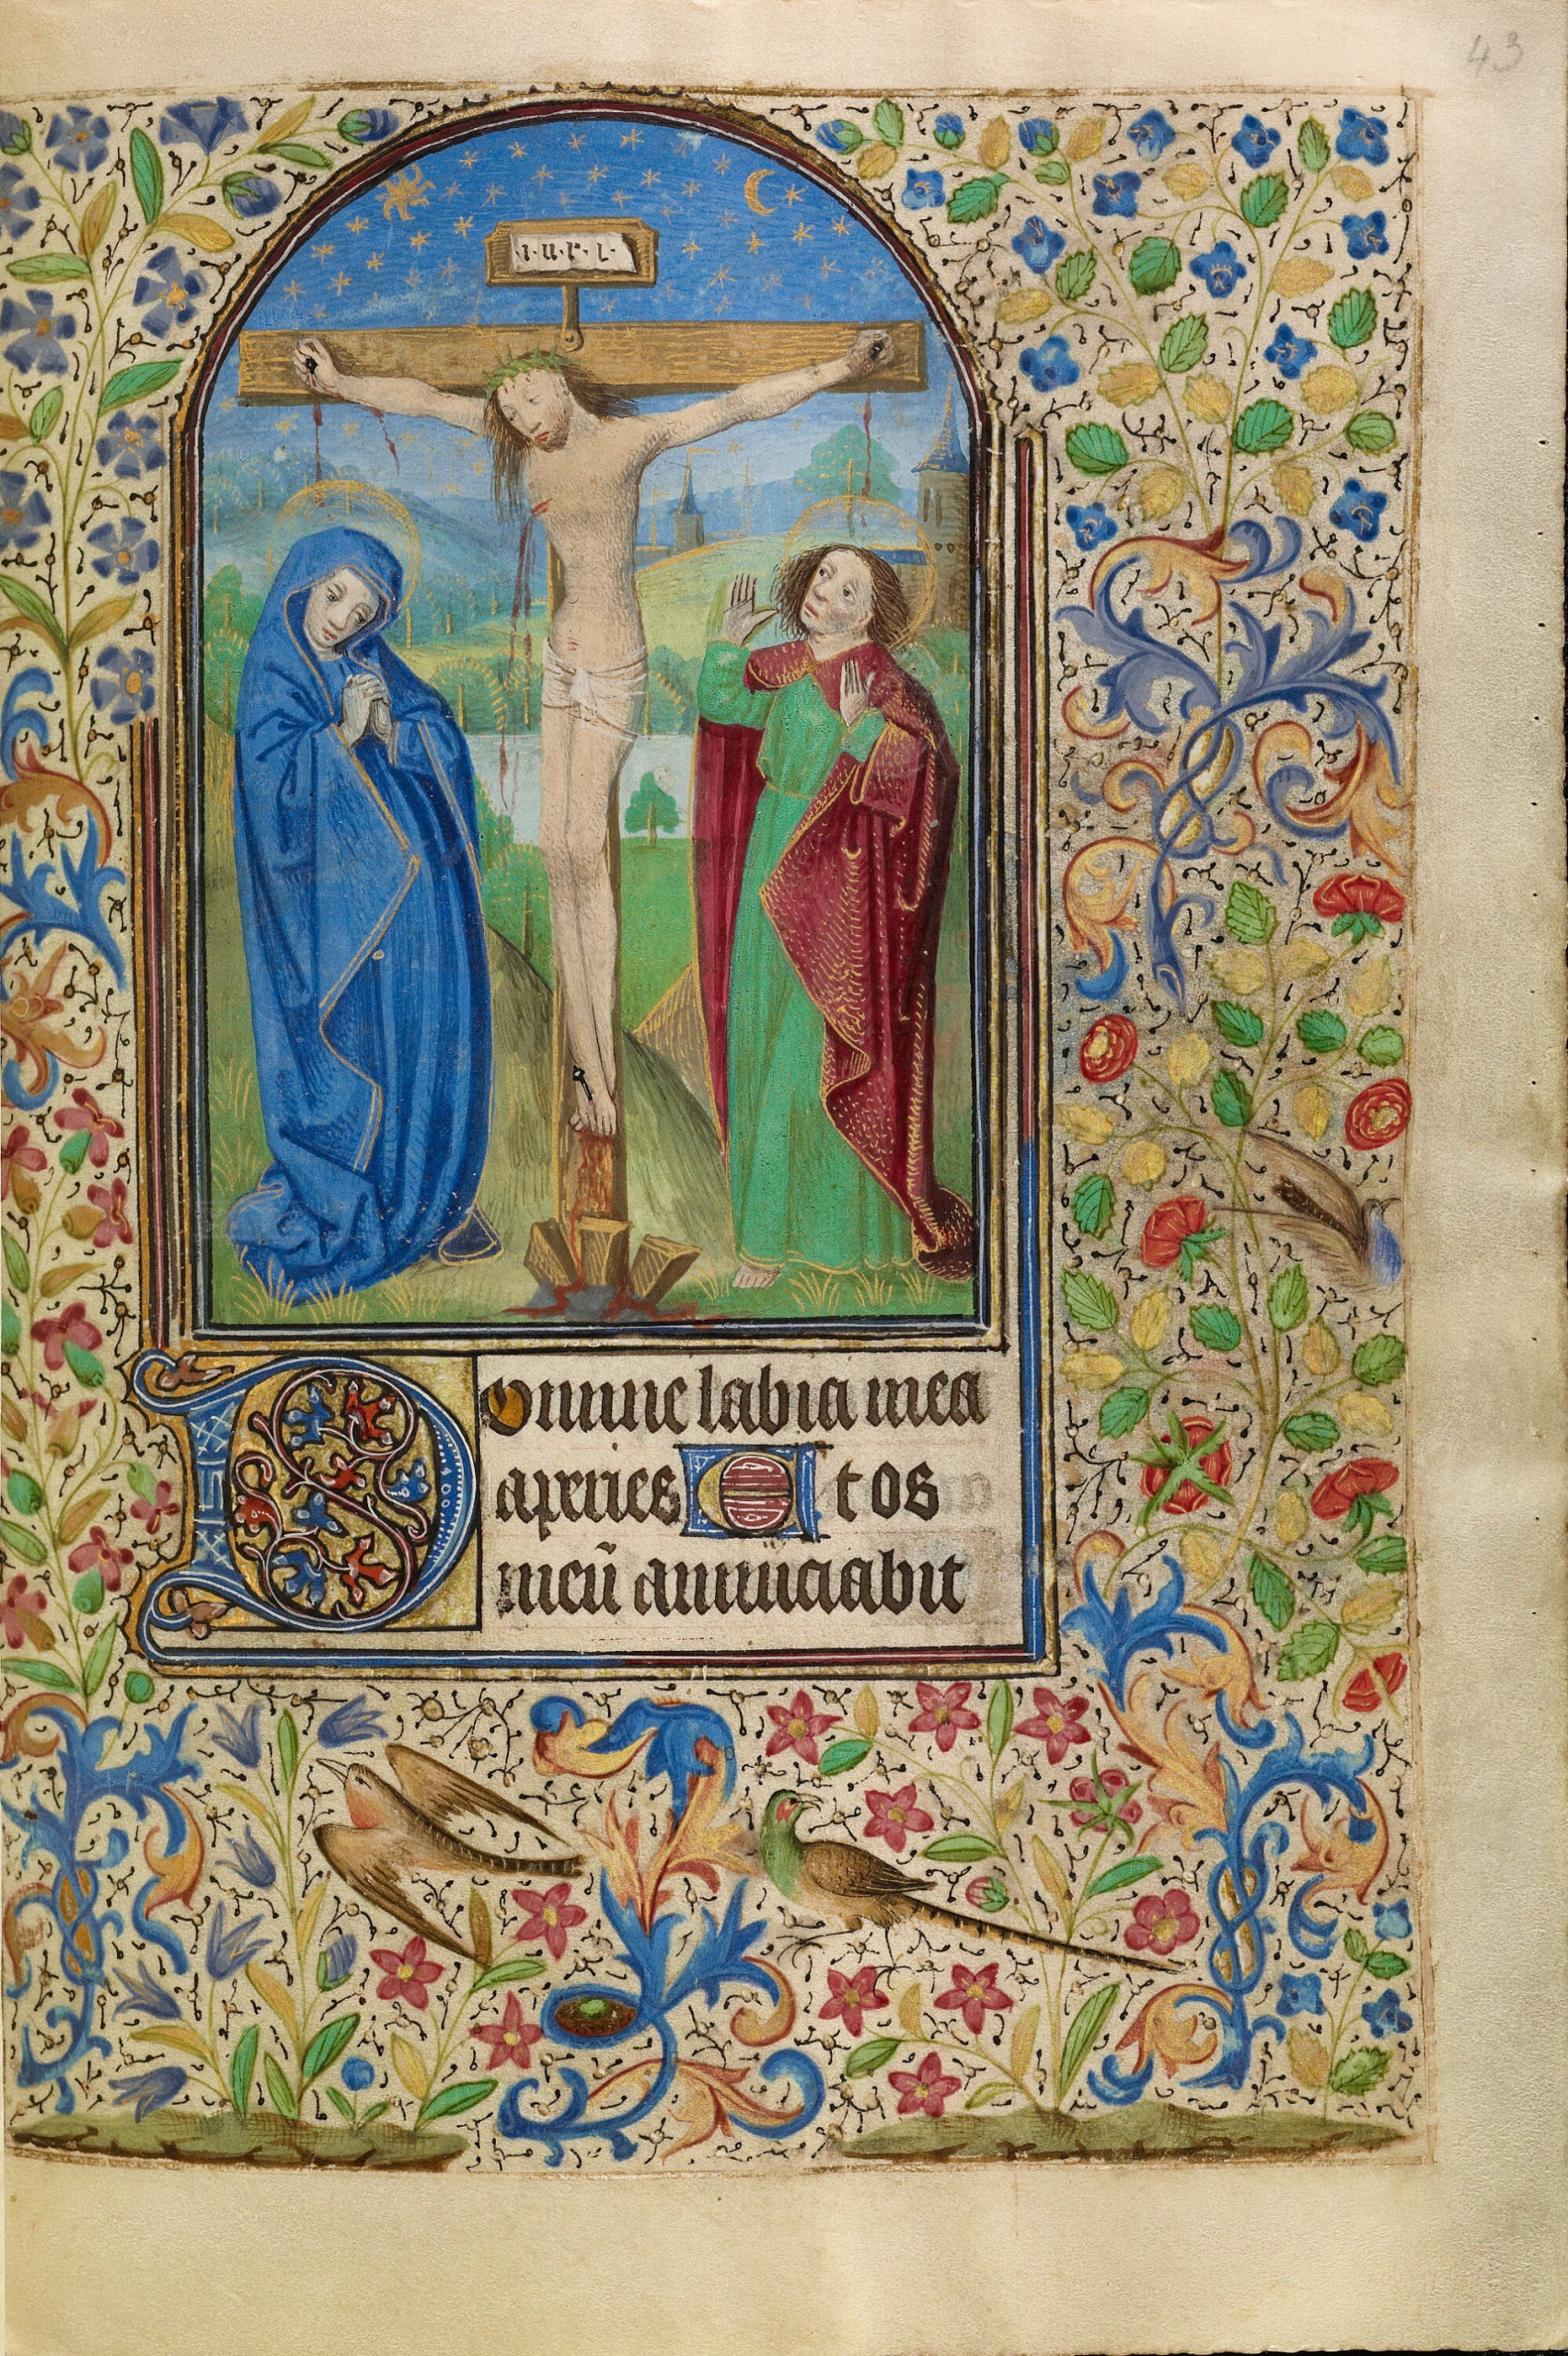 43
·i·n·r·i·
Domine labia mea
aperies Et os
meū anunciabit